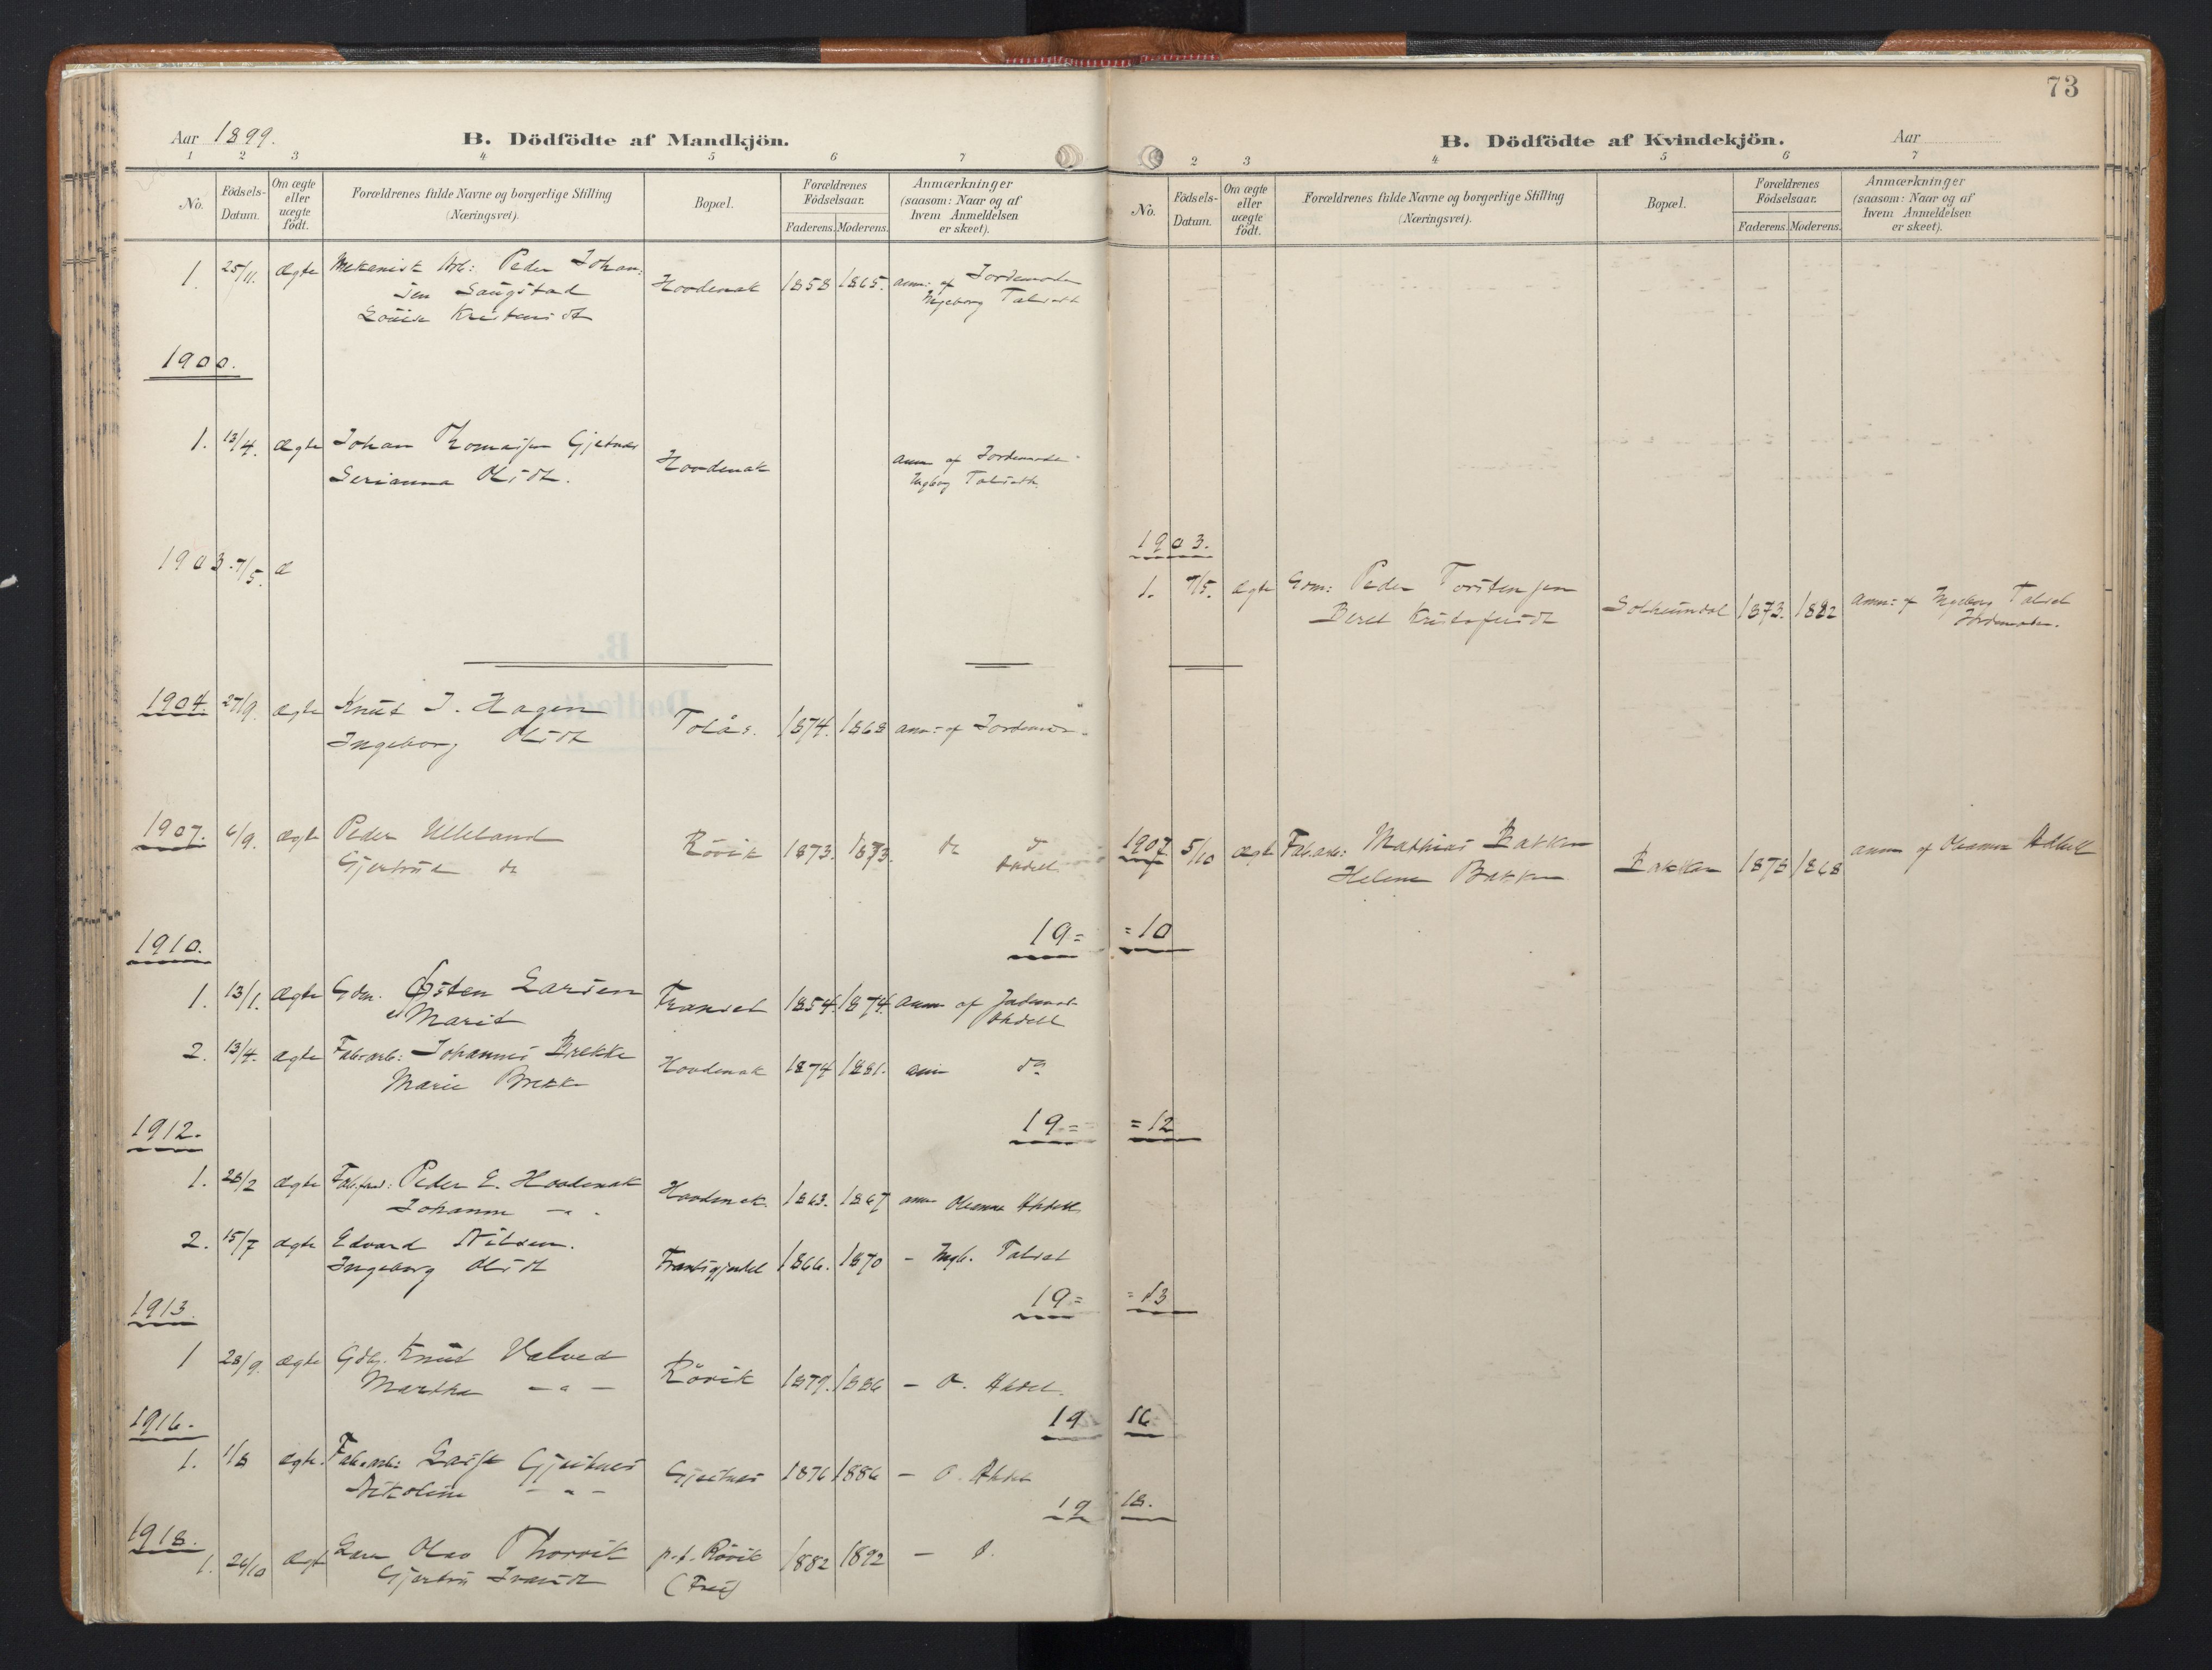 Aar 1899.
B. Dödfödte af Mandkjön.
1 2 3 4 5 6 7
No.
Födsels-Datum.
Om ægte eller uægte födt.
Forældrenes fulde Navne og borgerlige Stilling (Næringsvei).
Bopæl.
Forældrenes Födselsaar.
Faderens. Moderens.
Anmærkninger (saasom: Naar og af hvem Anmeldelsen er skeet).
1. 25/11. ægte Mekanisk Arb: Peder Johan- Hovdenak 1858 1865. anm: af Jordemoder
sen Saugstad Ingeborg Talseth
Louise Kristensdt
1900.
1. 13/4. ægte Johan Thomassen Gjetnes Hovdenak anm af Jordemoder
Serianna Olsdt. Ingborg Talseth.
1903. 7/5. æ
1904. 27/9. ægte Knut J. Hagen Tolås. 1874. 1868 anm: af Jordemor
Ingeborg Olsdt
1907. 6/9. ægte Peder Ulleland Rövik 1873. 1873. do
Gjertrud do
1910. 19=
1. 13/1. ægte Gdm. Østen Larsen Franset 1854. 1874. anm af Jordemor
Marit
2. 13/4. ægte Fabrarb: Johannes Brekke Hovdenak 1874 1881. anm do
Marie Brekke
1912. 19=
1. 28/2 ægte Peder E. Hovdenak Hovdenak. 1863. 1867 anm Oleanna
Johanne - " -
2. 15/7 ægte Edvard Nilsen. 1866. 1870 - Ingb. Talset
Ingeborg Olsdt
1913. 19=
1 28/9. ægte Knut Valved Rövik 1879. 1886 - O.
Marthe - " -
1916. 19
1. 1/8 ægte. Fabrarb: Gjeitnes Gjeitnes 1876 1886 - O.
Nikoline - " -
19
1918.
1. 26/10 ægt Olav Thorvik p.t. Rövik 1882 1892 -
(Frei)
73
B. Dödfödte af Kvindekjön.
Aar
2 3 4 5 6 7
No.
Födsels-Datum.
Om ægte eller uægte födt.
Forældrenes fulde Navne og borgerlige Stilling (Næringsvei).
Bopæl.
Forældrenes Födselsaar.
Faderens. Moderens.
Anmærkninger (saasom: Naar og af hvem Anmeldelsen er skeet).
1903.
1. 7/5. ægte Gdm: Peder Torstensen Solheimdal 1873. 1882 anm: af Ingeborg Talset
Beret Kristofersdt Jordemoder.
1907 5/10 ægte Fab.arb: Mathias Bakken Bakken 1878 1868 anm af Oleanna
Helene Bakken
=10
=12
=13
16
18.